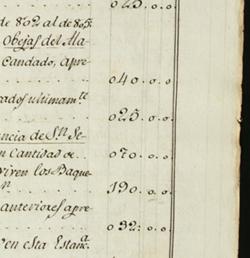 025.o.o
de 802 al de 805.
Obejas del Ma-
Candado, apre-
040.o.o
rados ultimam.te
025.o.o
ncia de S.n Se-
n Cantidad de
070.o.o
viven los Baque-
190.o.o
anteriores apre-
032.o.o
en esta Estanc.a